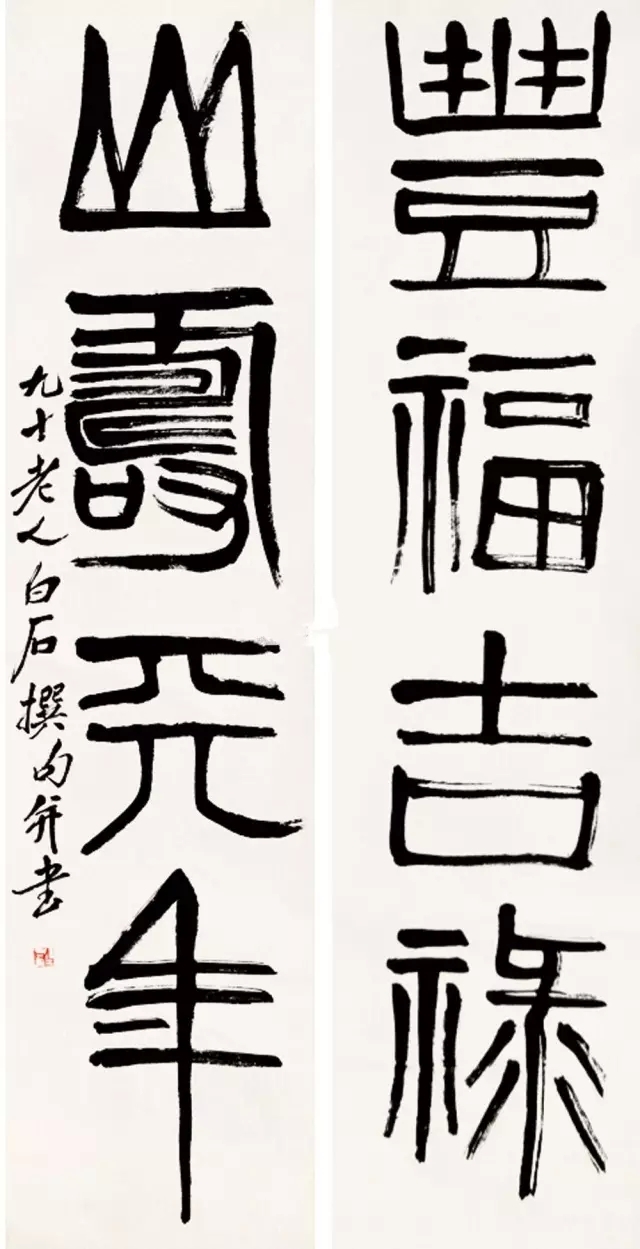 豐福吉祿
山壽元年
九十老人白石撰句并書